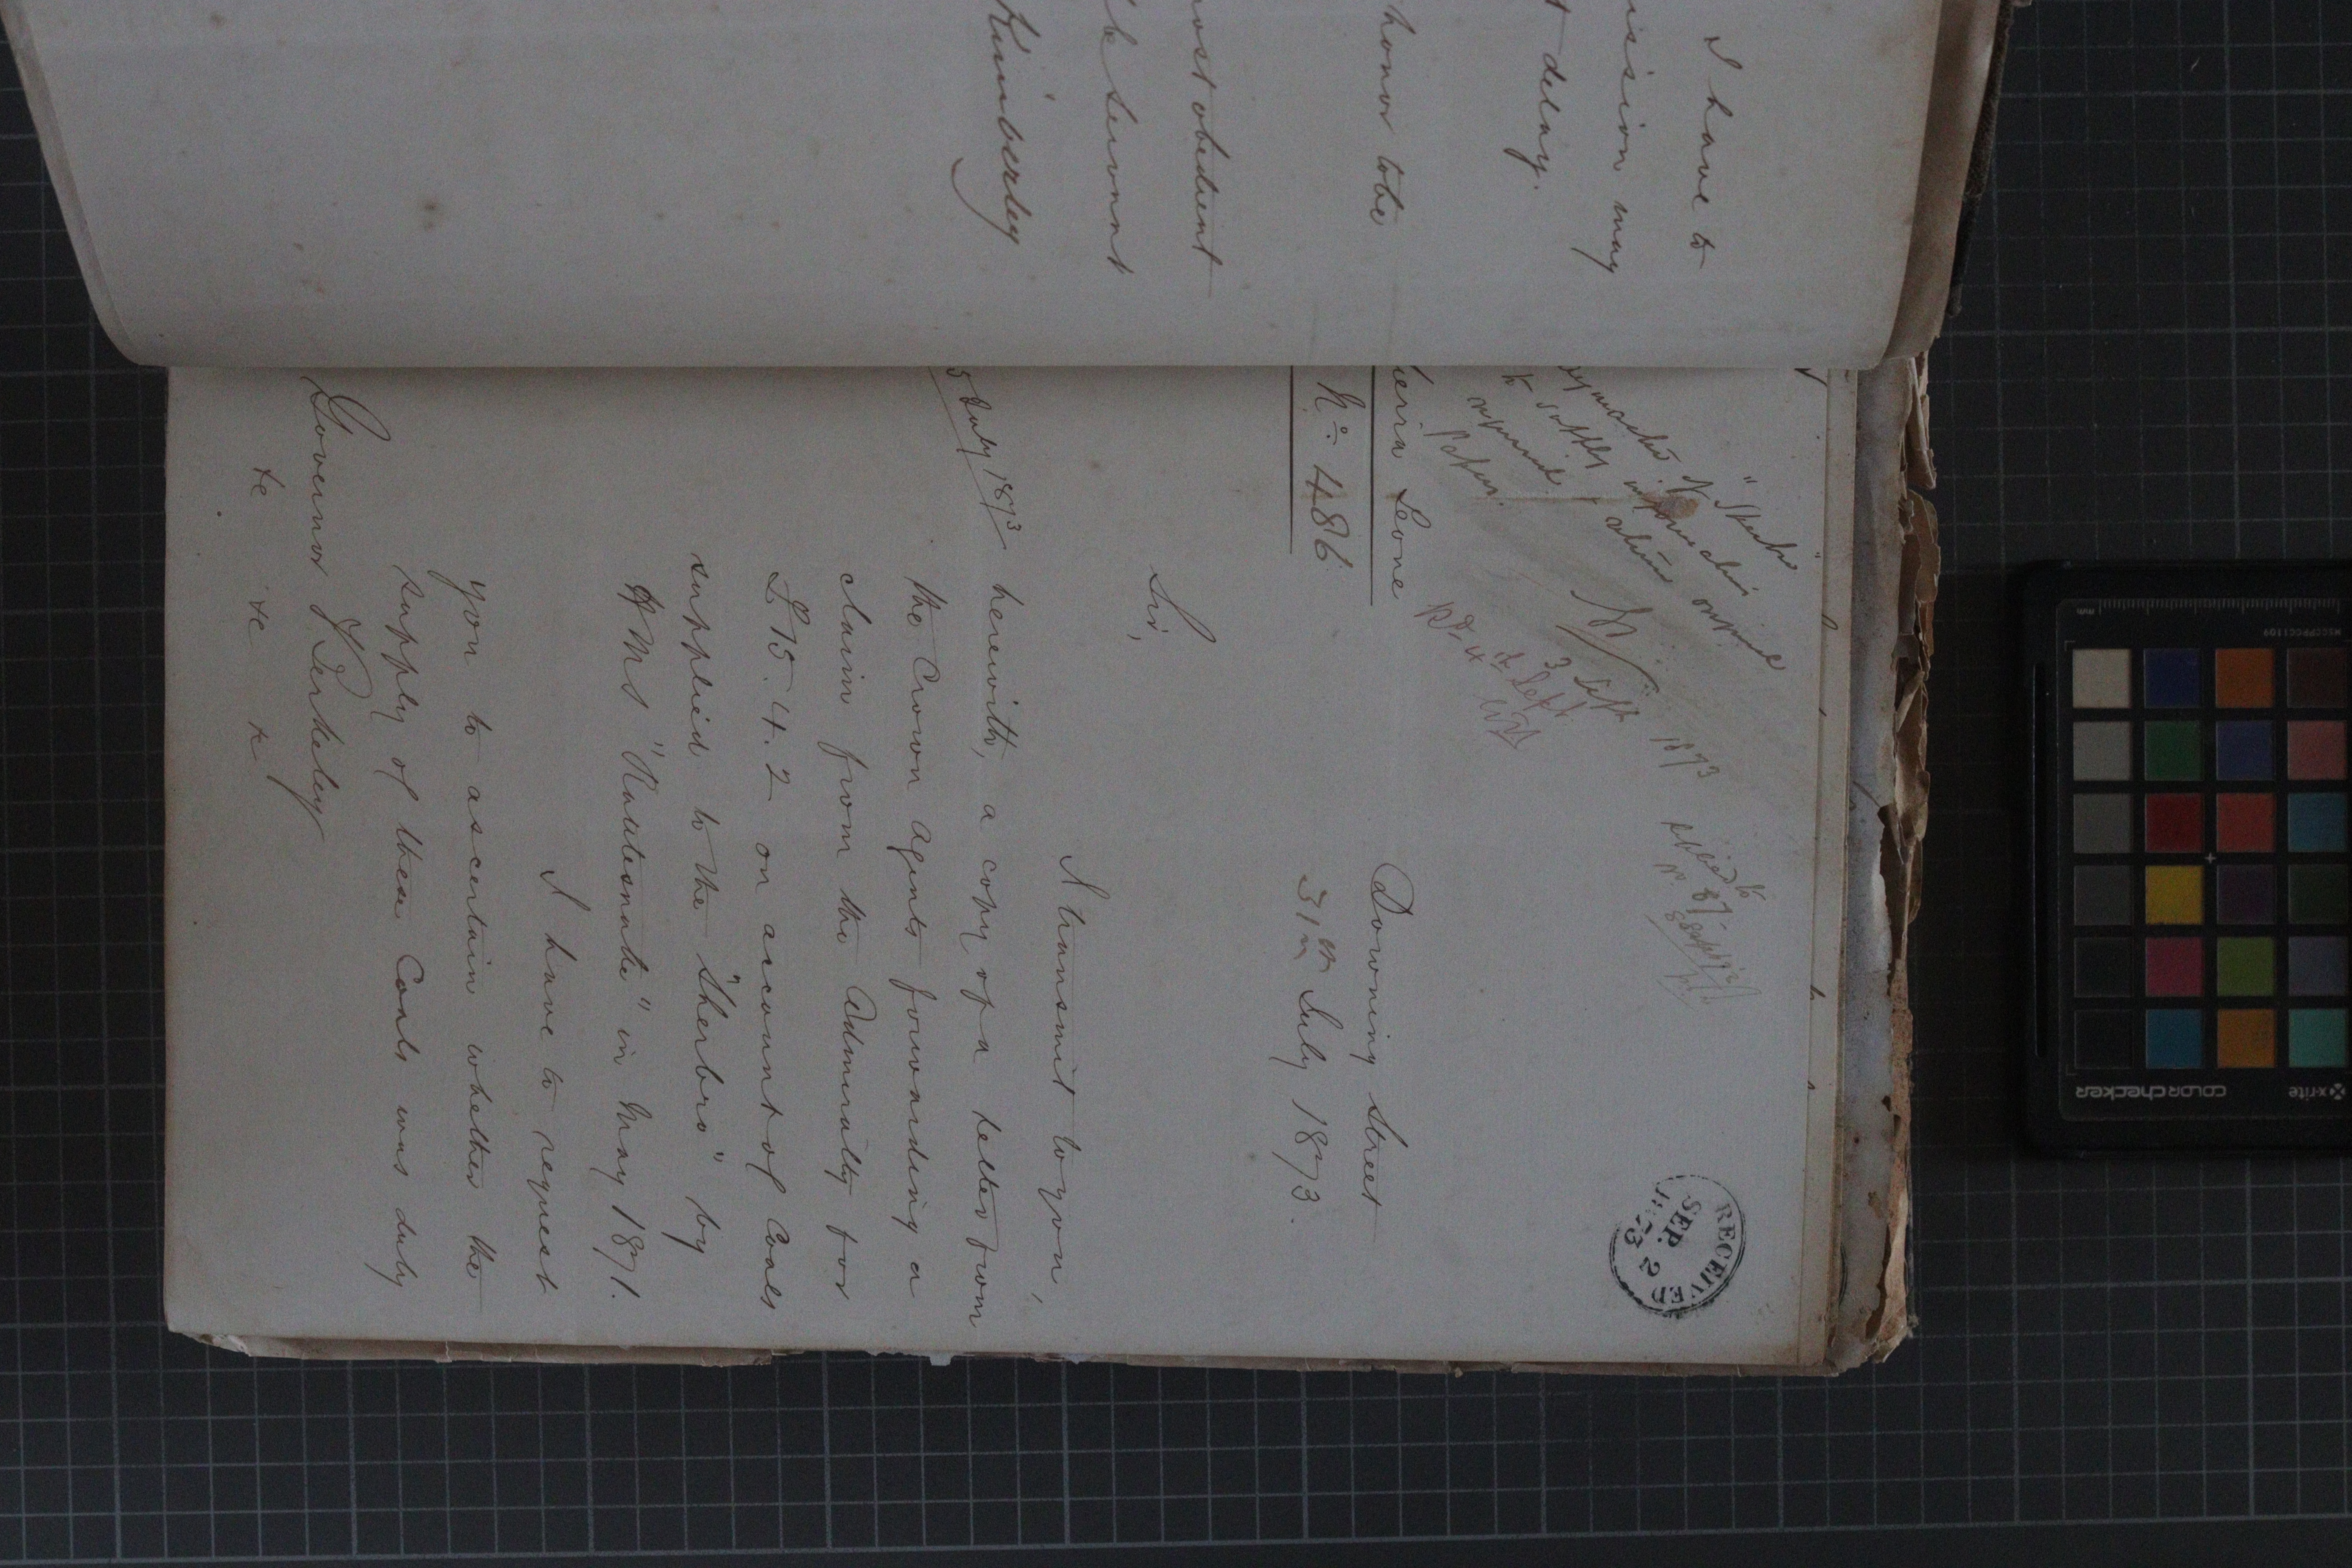 I have to
ission may
t delay.
honor to be
most obedient
ble servant
Kimberley
RECEIVED
SEP. 2
1873
"Sherbro"
3 Sept 1873
Rd 4th Sept
Sierra Leone
No. 486
Downing Street
31st July 1873.
Sir,
I transmit to you,
5 July 1873
herewith, a copy of a letter from
the Crown Agents forwarding a
claim from the Admiralty for
£15.4.2 on account of Coals
supplied to the "Sherbro" by
HMS "Rattlesnake" in May 1871.
I have to request
you to ascertain whether the
supply of these Coals was duly
Governor Berkeley
&c &c &c
x-rite
colorchecker
MSCCPPCC1109
mm